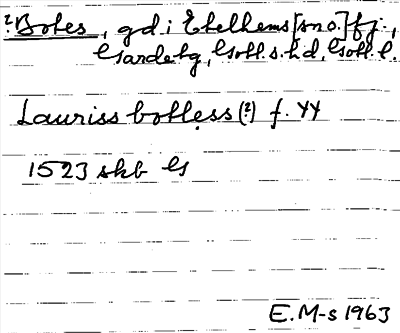 ?Botes, gd i Etelhems [sno.] fj.,
Gardetg, Gotl. s. hd, Gotl. l.
Lauriss botless (?) f. YY
1523 skb G
E. M-s 1963